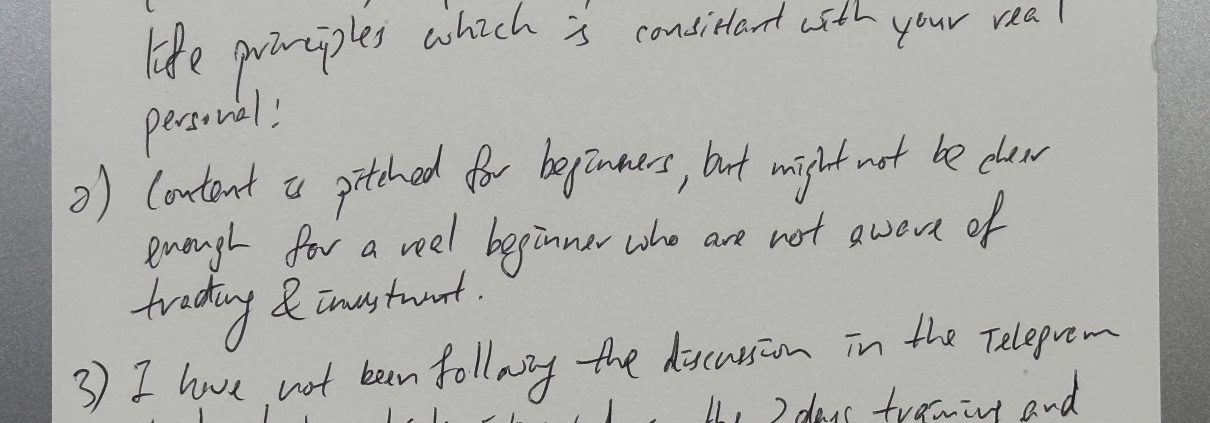 life principles which is consistant with your real
personal!
2) Content is pitched for beginners, but might not be clear
enough for a real beginner who are not aware of
trading & investment.
3) I have not been following the discussion in the Telegram
the 2 days training and